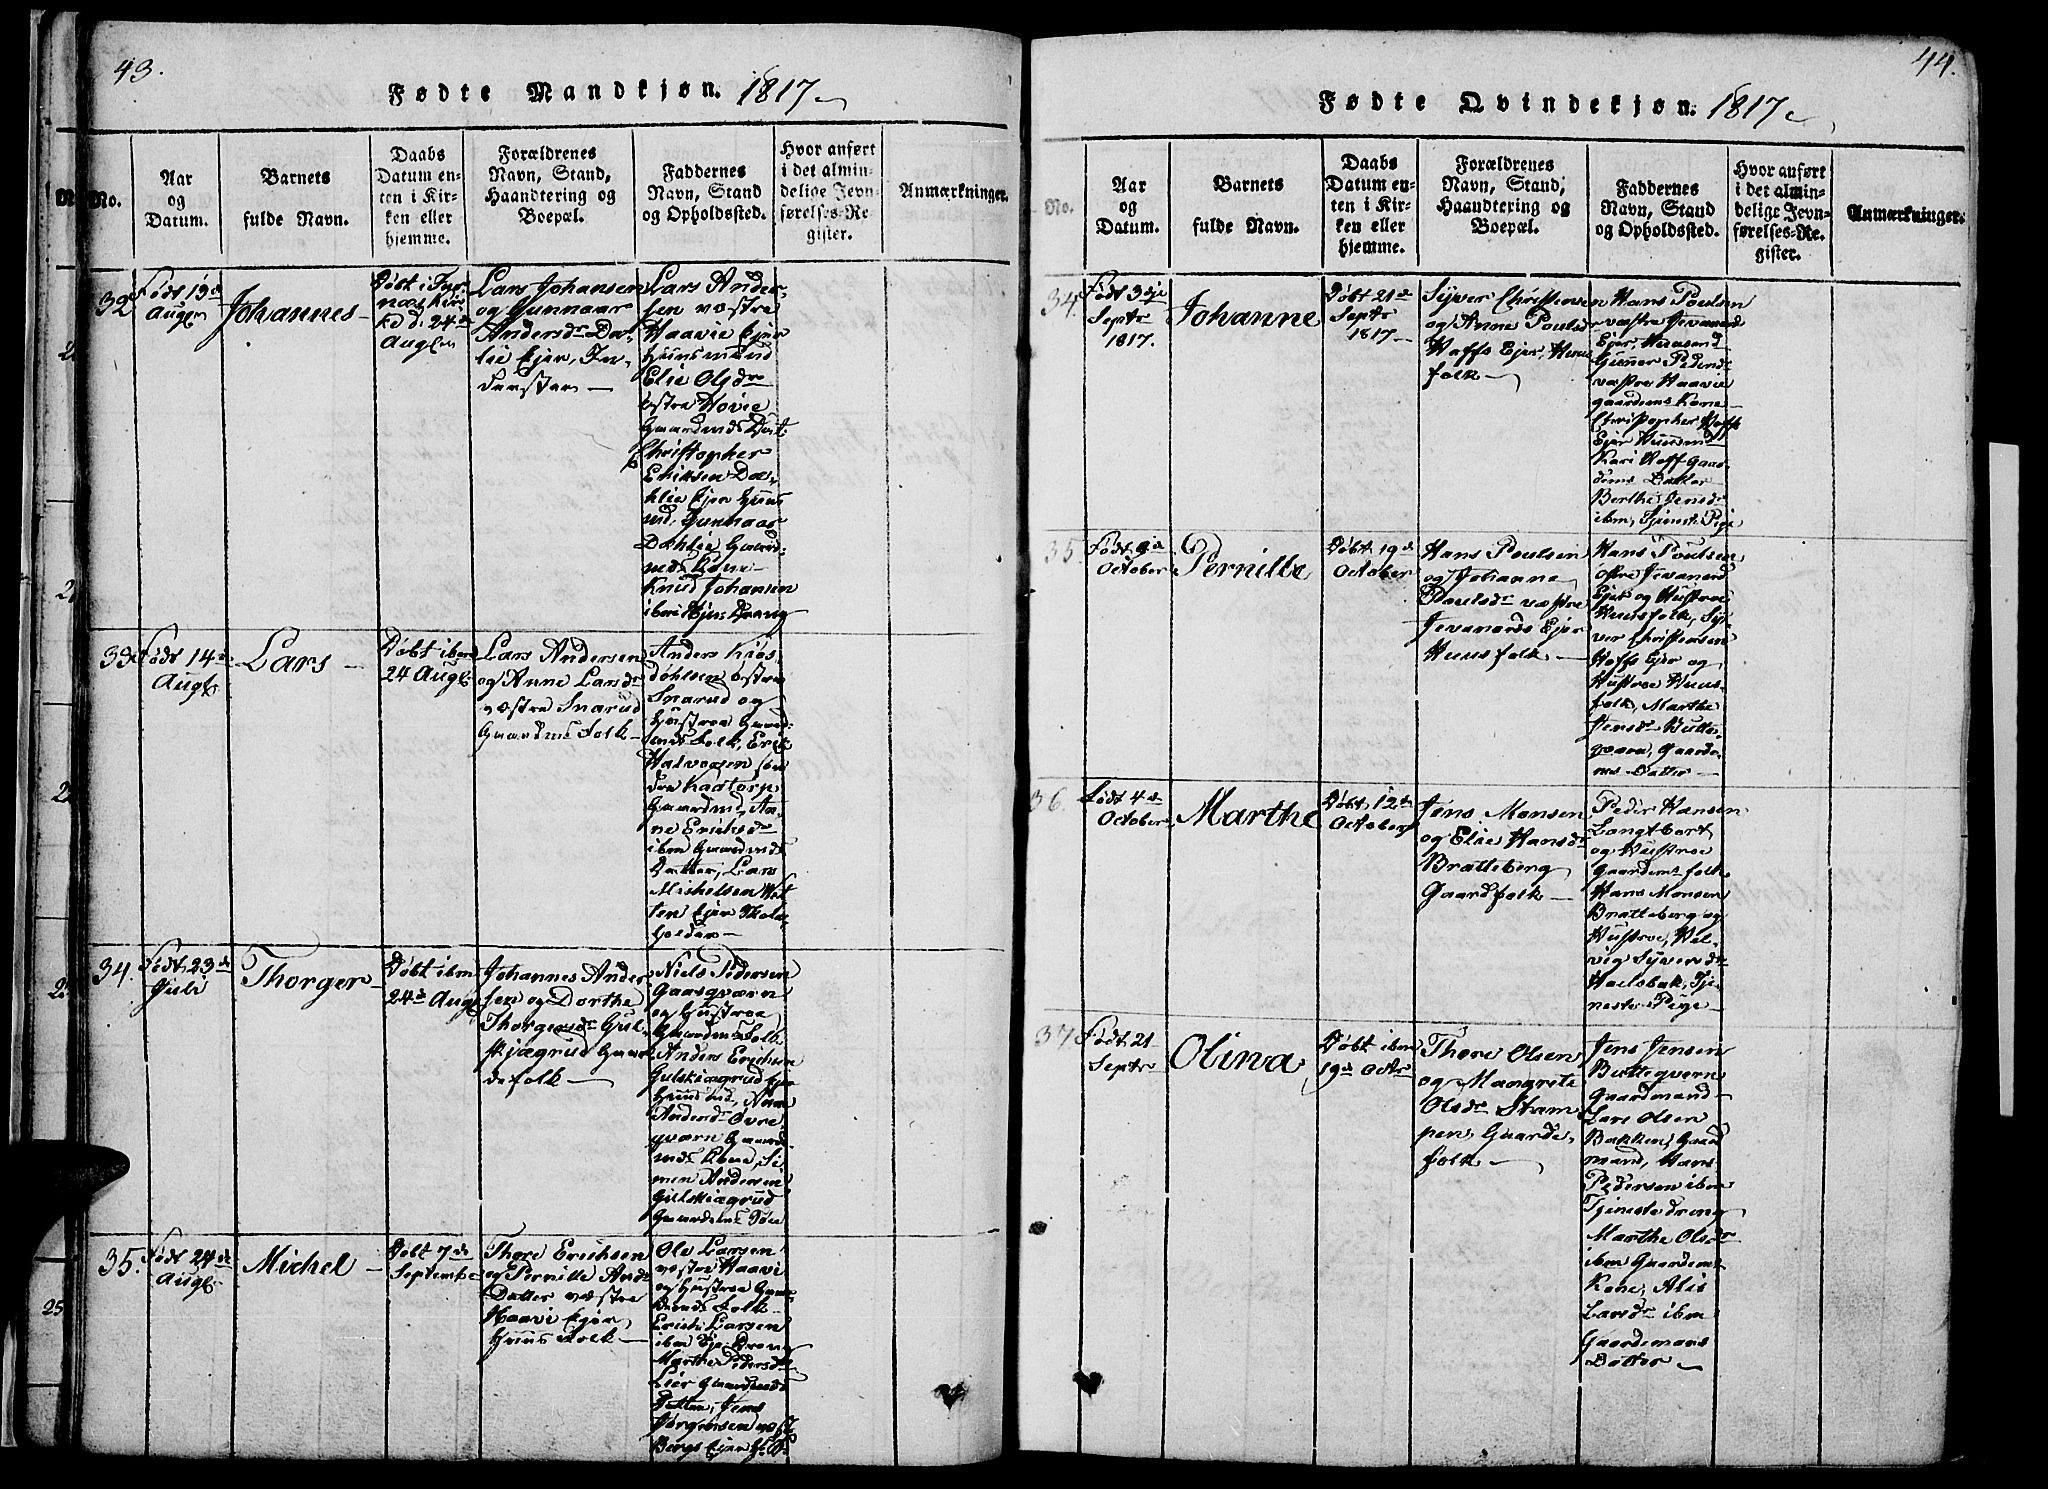 43.
Fødte Mandkjøn. 1817
No.
Aar
og
Datum.
Barnets
fulde Navn.
Daabs
Datum en-
ten i Kir-
ken eller
hjemme.
Forældrenes
Navn, Stand,
Haandtering og
Boepæl.
Faddernes
Navn, Stand
og Opholdssted.
Hvor anført
i det almin-
delige Jevn-
førelses-Re-
gister.
Anmærkninger.
32
Født 19de
Augs
Johannes
Døbt i
24de
Augs
Lars Johansen
og Gunnaar
Andersdr Da-
lie Ejer, In-
derster
Lars Ander-
sen væstre
Haavie Ejer
Huusmand
Elie Olsdr
østre Hovie
Gaardmds Datt:
Christopher
Eriksen Da-
hlie Ejer Huus
md, Gunnaar
Dahlie Gaard-
mds Kone
Knud Johansen
ibm Ejer Dreng
33
Født 14de
Augs
Lars
Døbt ibm
24 Augs:
Lars Andersen
og Anne Larsdr
væstre Snarud
Gaardms Folk
Anders
Døhlen østre
Snarud og
Hustroe Gaard-
mds Folk, Erik
Halvorsen
Gaardmd,
ne Erichsdr
ibm Gaardmds
Datter, Lars
Michelsen
ten Ejer
34.
Født 23de
Juli
Thorger
Døbt ibm
24de Augs
Johannes Ander
sen og Dorthe
Thorgersdr Gul-
skjægrud Gaar
defolk
Niels Pedersen
Gaasqværn
og Hustroe
Gaardms Folk
Anders Erichsen
Gulskiægrud Ejer
Huusmd,
Andersdr Øvre
qværn Gaard
mds Kone, Si
men Andersen
Gulskiægrud
Gaardms Søn
35.
Født 24de
Augs
Michel
Døbt 7de
Septembe
Thore Erichsen
og Pernille Ands
Datter væstre
Haavi Ejer
Huus Folk
Ole Larsen
væstre Haavi
og Hustroe Gaa
Folk
Larsen
ibm Eje Dreng
Marthe Pedersdr
Lier Gaardmds
Datter, Jens
Jørgensen
Bergs Ejer
44.
Fødte Qvindekjøn. 1817
No.
Aar
og
Datum.
Barnets
fulde Navn.
Daabs
Datum en-
ten i Kir-
ken eller
hjemme.
Forældrenes
Navn, Stand,
Haandtering og
Boepæl.
Faddernes
Navn, Stand
og Opholdssted.
Hvor anført
i det almin-
delige Jevn-
førelses-Re-
gister.
Anmærkninger.
34.
Født 3dje
Septr
1817.
Johanne
Døbt 21de
Septr
1817
Syver Christensen
og Anne Poulsdr
Hoffs Ejer, Huus
folk
Hans Poulsen
væstre Jevanord
Ejer, Huusmd
Guner Pedersdr
væstre Haavie
gaardms Kone
Christopher Hoffs
Ejer Huusmd
Kari Hoff Gaar-
dems Datter
Berthe Jensdr
ibm, Tjeneste Pige
35.
Født 9de
October
Pernille
Døbt 19de
October
Hans Poulsen
og Johanne
Paulsdr væstre
Jevanords Ejer
Huusfolk
Hans Poulsen
østre Jevanord
Ejer og Hustroe
Huusfolk, Sy-
ver Christensen
Hoffs Ejer og
Hustroe Huus-
folk, Marthe
Jensdr Butte-
qværn, Gaarde-
ms Datter
36.
Født 4de
October
Marthe
Døbt 12te
October
Jens Monsen
og Elie Hansdr
Bratteberg
Gaardfolk
Peder Hansen
Langtbort
og Hustroe
Gaardemsfolk
Hans Monsen
Bratteberg og
Hustroe, Hel-
vig Syversdr
Haelsbak, Tje-
neste Pige
37
Født 21
Septr
Olina
Døbt ibm
19de Octr
Thore Olsen
og Mangrete
Olsdr Stam
pen, Gaarde-
folk
Jens Jensen
Butteqvern
Gaardmand
Lars Olsen
Bakken, Gaard
mand, Hans
Pedersen ibm
Tjenestedreng
Marthe Olsdr
ibm Gaardem.
Kone, Alis
Larsdr ibm
Gaardemans
Datter
25